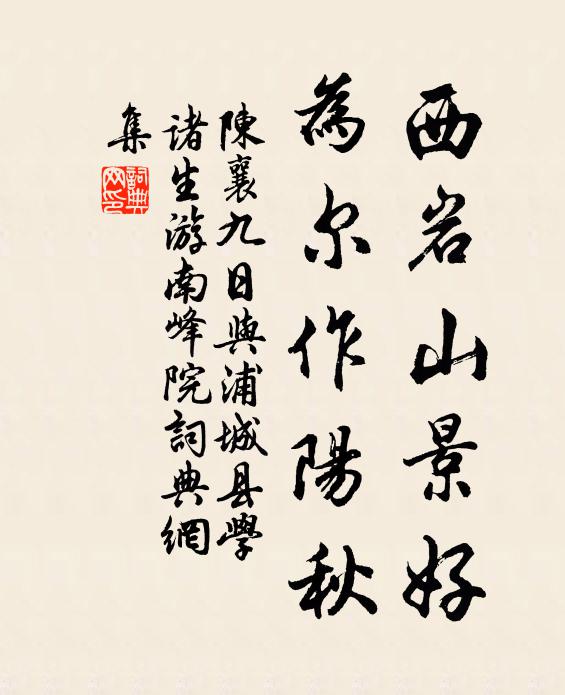 西岩山景好
為尔作陽秋
陳襄九日與浦城县學
諸生游南峰院詞典網
集
詞典
网印